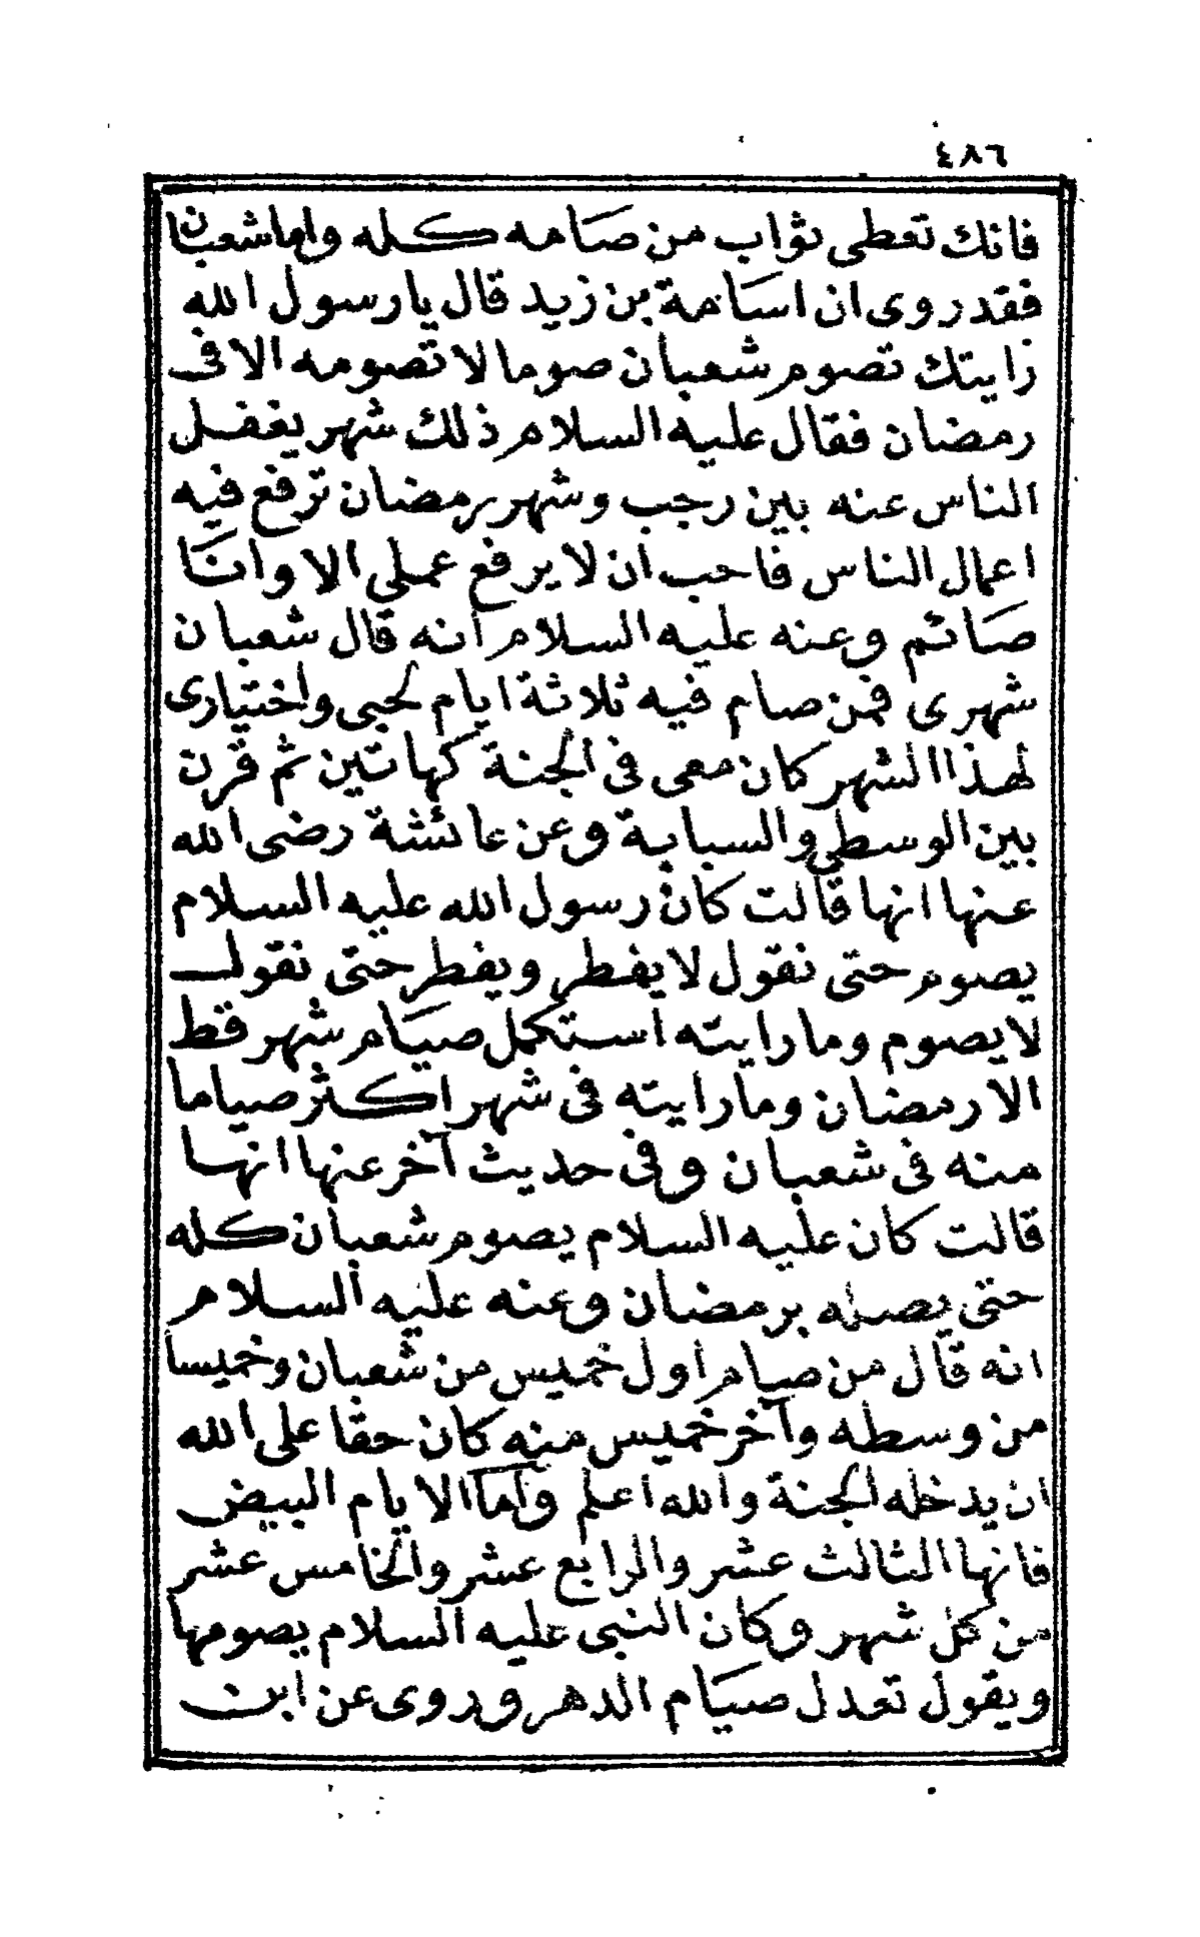 ٤٨٦
فانك تعطى ثواب من صامه كله واما شعبان
فقد روى ان اسامة بن زيد قال يا رسول الله
رايتك تصوم شعبان صوما لا تصومه الا فى
رمضان فقال عليه السلام ذلك شهر يغفل
الناس عنه بين رجب وشهر رمضان ترفع فيه
اعمال الناس فاحب ان لا يرفع عملى الا وانا
صائم وعنه عليه السلام انه قال شعبان
شهرى فمن صام فيه ثلاثة ايام لحبى واختيارى
لهذا الشهر كان معى فى الجنة كهاتين ثم قرن
بين الوسطى والسبابة وعن عائشة رضى الله
عنها انها قالت كان رسول الله عليه السلام
يصوم حتى نقول لا يفطر ويفطر حتى نقول
لا يصوم وما رايته استكمل صيام شهر قط
الا رمضان وما رايته فى شهر اكثر صياما
منه فى شعبان وفى حديث آخر عنها انها
قالت كان عليه السلام يصوم شعبان كله
حتى يصله برمضان وعنه عليه السلام
انه قال من صيام اول خميس من شعبان وخميسا
من وسطه وآخر خميس منه كان حقا على الله
ان يدخله الجنة والله اعلم واما الايام البيض
فانها الثالث عشر والرابع عشر والخامس عشر
من كل شهر وكان النبى عليه السلام يصومها
ويقول تعدل صيام الدهر وروى عن ابن